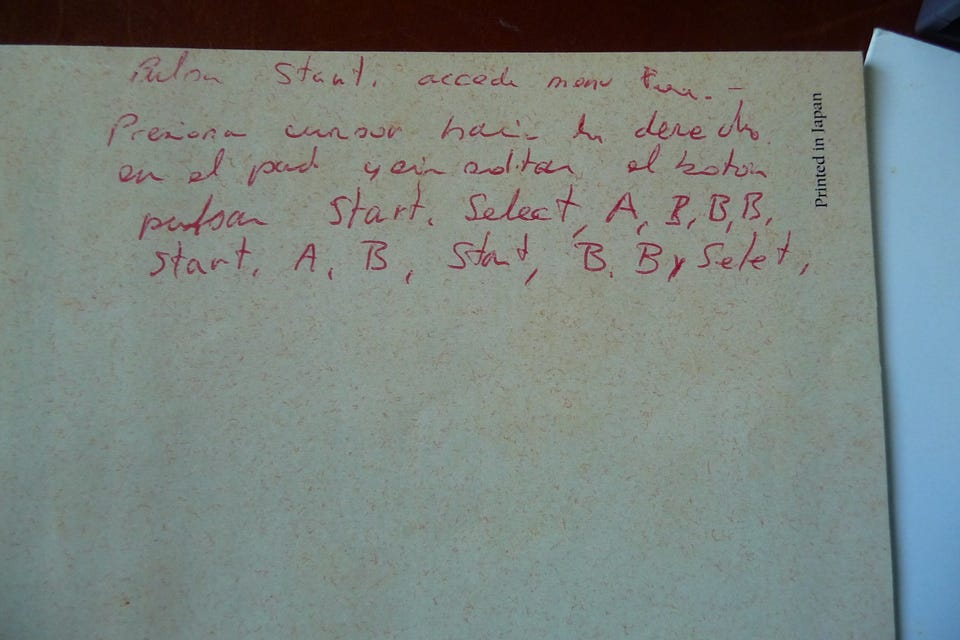 Pulsa Start, accede menu
Presiona cursor hacia la derecha
en el pad y sin soltar el botón
pulsar Start, Select, A, B, B, B,
start, A, B, Start, B, B y Selet,
Printed in Japan